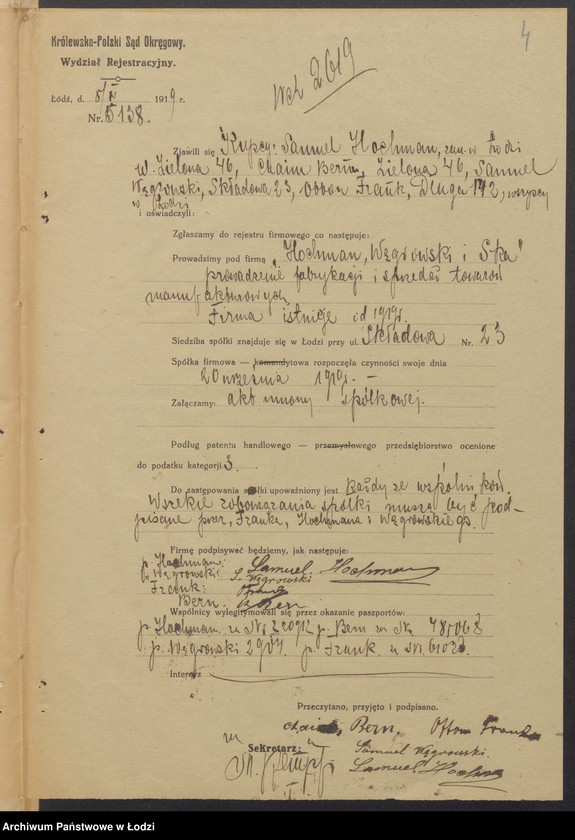 4
Królewsko-Polski Sąd Okręgowy.
Wydział Rejestracyjny.
Łódź, d. 1919 r.
Nr. 5138.
2619
Zjawili się Kupcy: Samuel Hochman, zam. w Łodzi
Zielona 46, Chaim Bern, Zielona 46, Samuel
Węgrowski, Składowa 23, Frank, Długa 142, wszyscy
w Łodzi
i oświadczyli:
Zgłaszamy do rejestru firmowego co następuje:
Prowadzimy pod firmą „Hochman, Węgrowski i Ska"
prowadzenie fabrykacji i sprzedaż towarów
manufakturowych
Firma istnieje od 1919r.
Siedziba spółki znajduje się w Łodzi przy ul. Składowa Nr. 23
Spółka firmowa — komandytowa rozpoczęła czynności swoje dnia
20 września 1919r. —
Załączamy: akt umowy spółkowej.
Podług patentu handlowego — przemysłowego przedsiębiorstwo ocenione
do podatku kategorji 3.
Do zastępowania spółki upoważniony jest każdy ze
Wszelkie zobowiązania spółki muszą być pod-
pisane przez, Franka, Hochmana i Węgrowskiego.
Firmę podpisywać będziemy, jak następuje:
p. Hochman: Samuel Hochman
p. Węgrowski: S. Węgrowski
Frank:
Bern: Bern
Wspólnicy wylegitymowali się przez okazanie paszportów:
p. Hochman za Nr. p. Bern za Nr.
p. Węgrowski p. Frank
Intercyz
Przeczytano, przyjęto i podpisano.
Bern. Otton Frank
Sekretarz: Samuel Węgrowski.
Samuel Hochman
Archiwum Państwowe w Łodzi